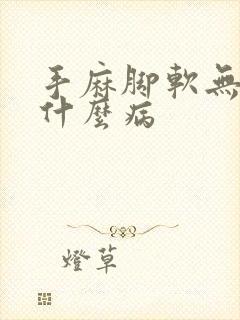 手麻腳軟無
什麼病
燈草